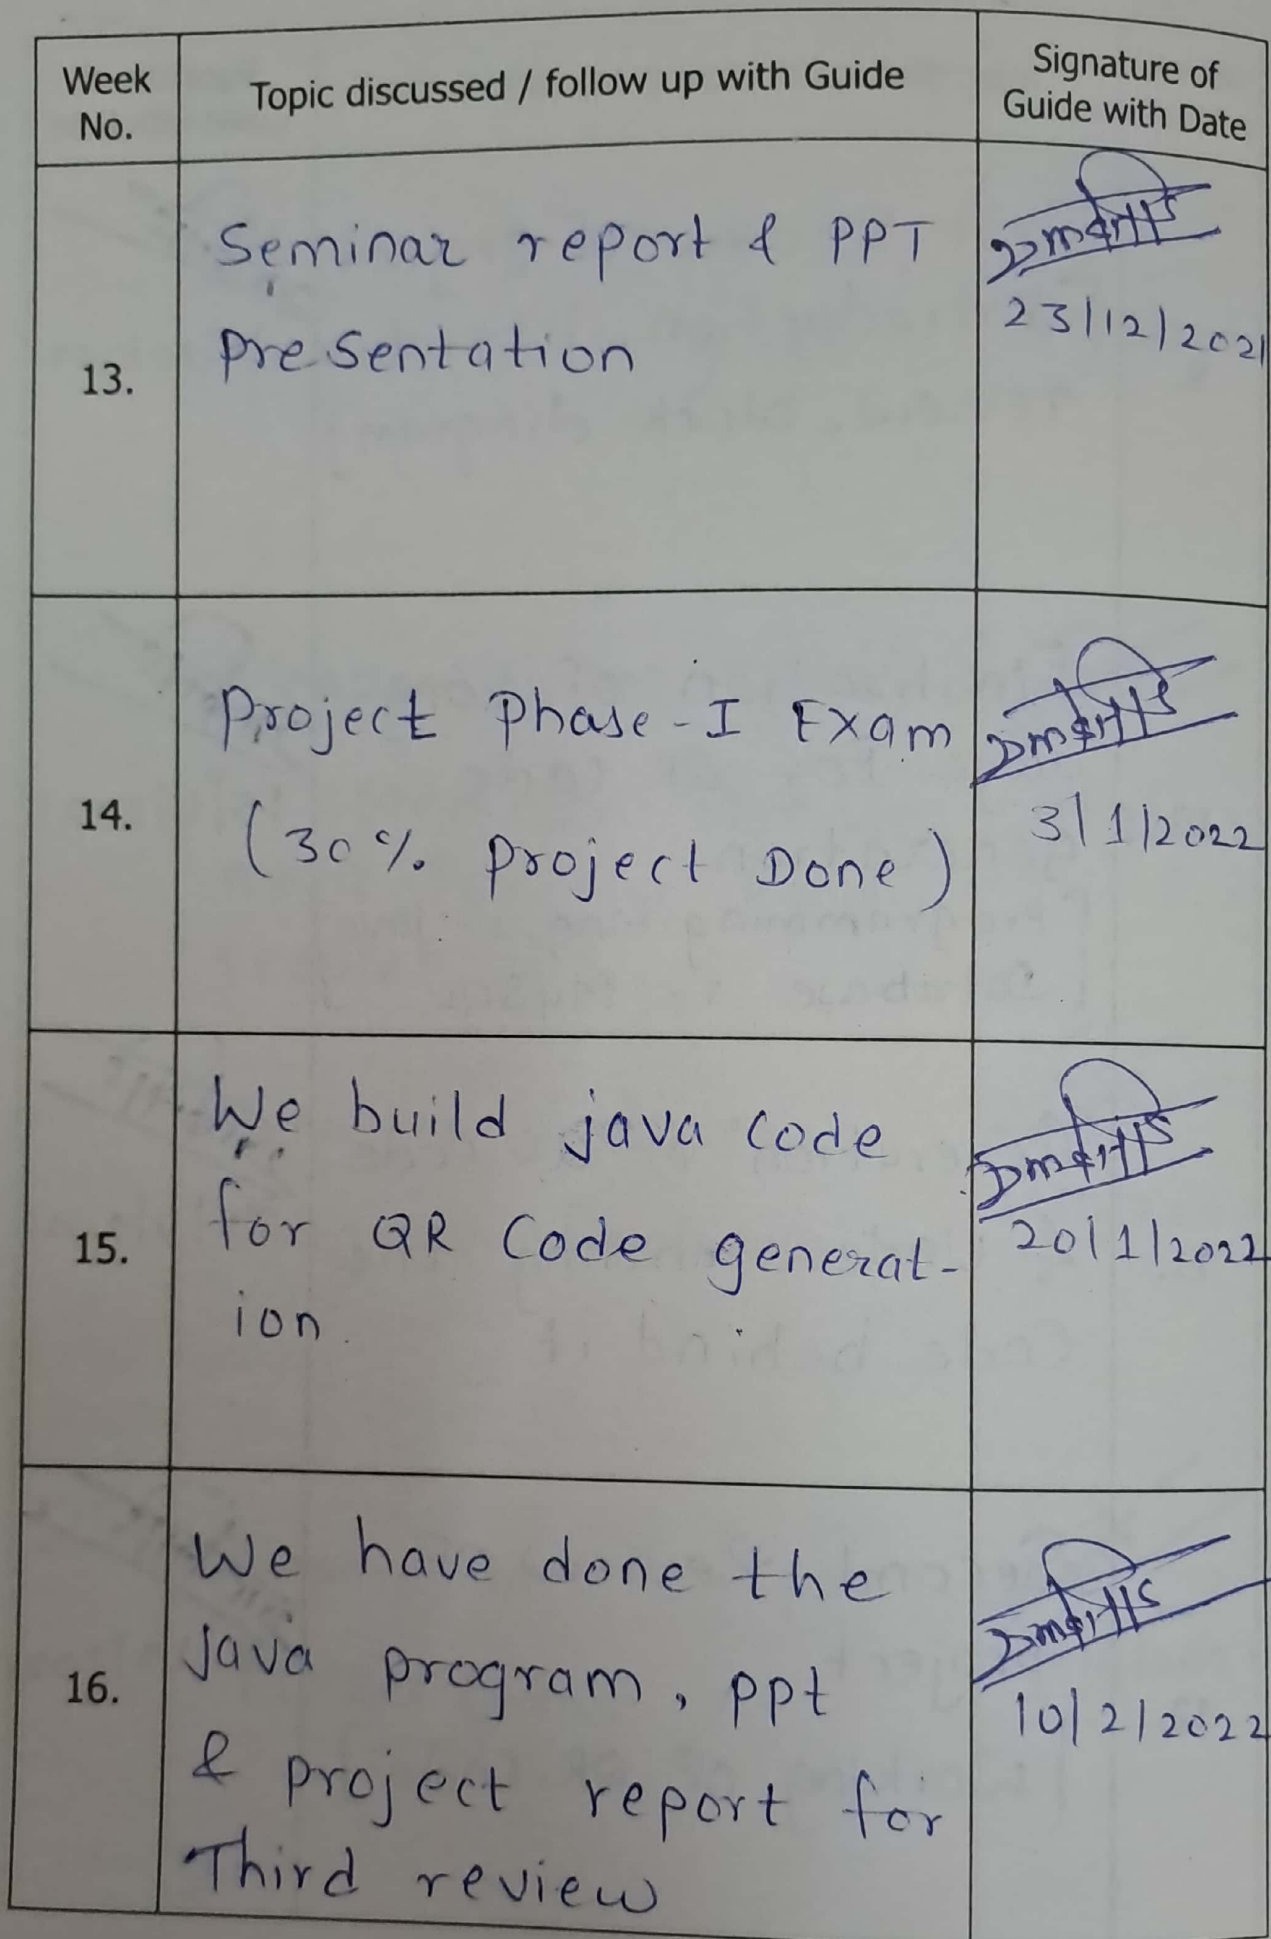 Week
No.
Topic discussed / follow up with Guide
Signature of
Guide with Date
13.
Seminar report & PPT
presentation
23/12/2021
14.
Project Phase-I Exam
(30% project Done)
3/1/2022
15.
We build java code
for QR Code generat-
ion.
20/1/2022
16.
We have done the
Java program, ppt
& project report for
Third review
10/2/2022